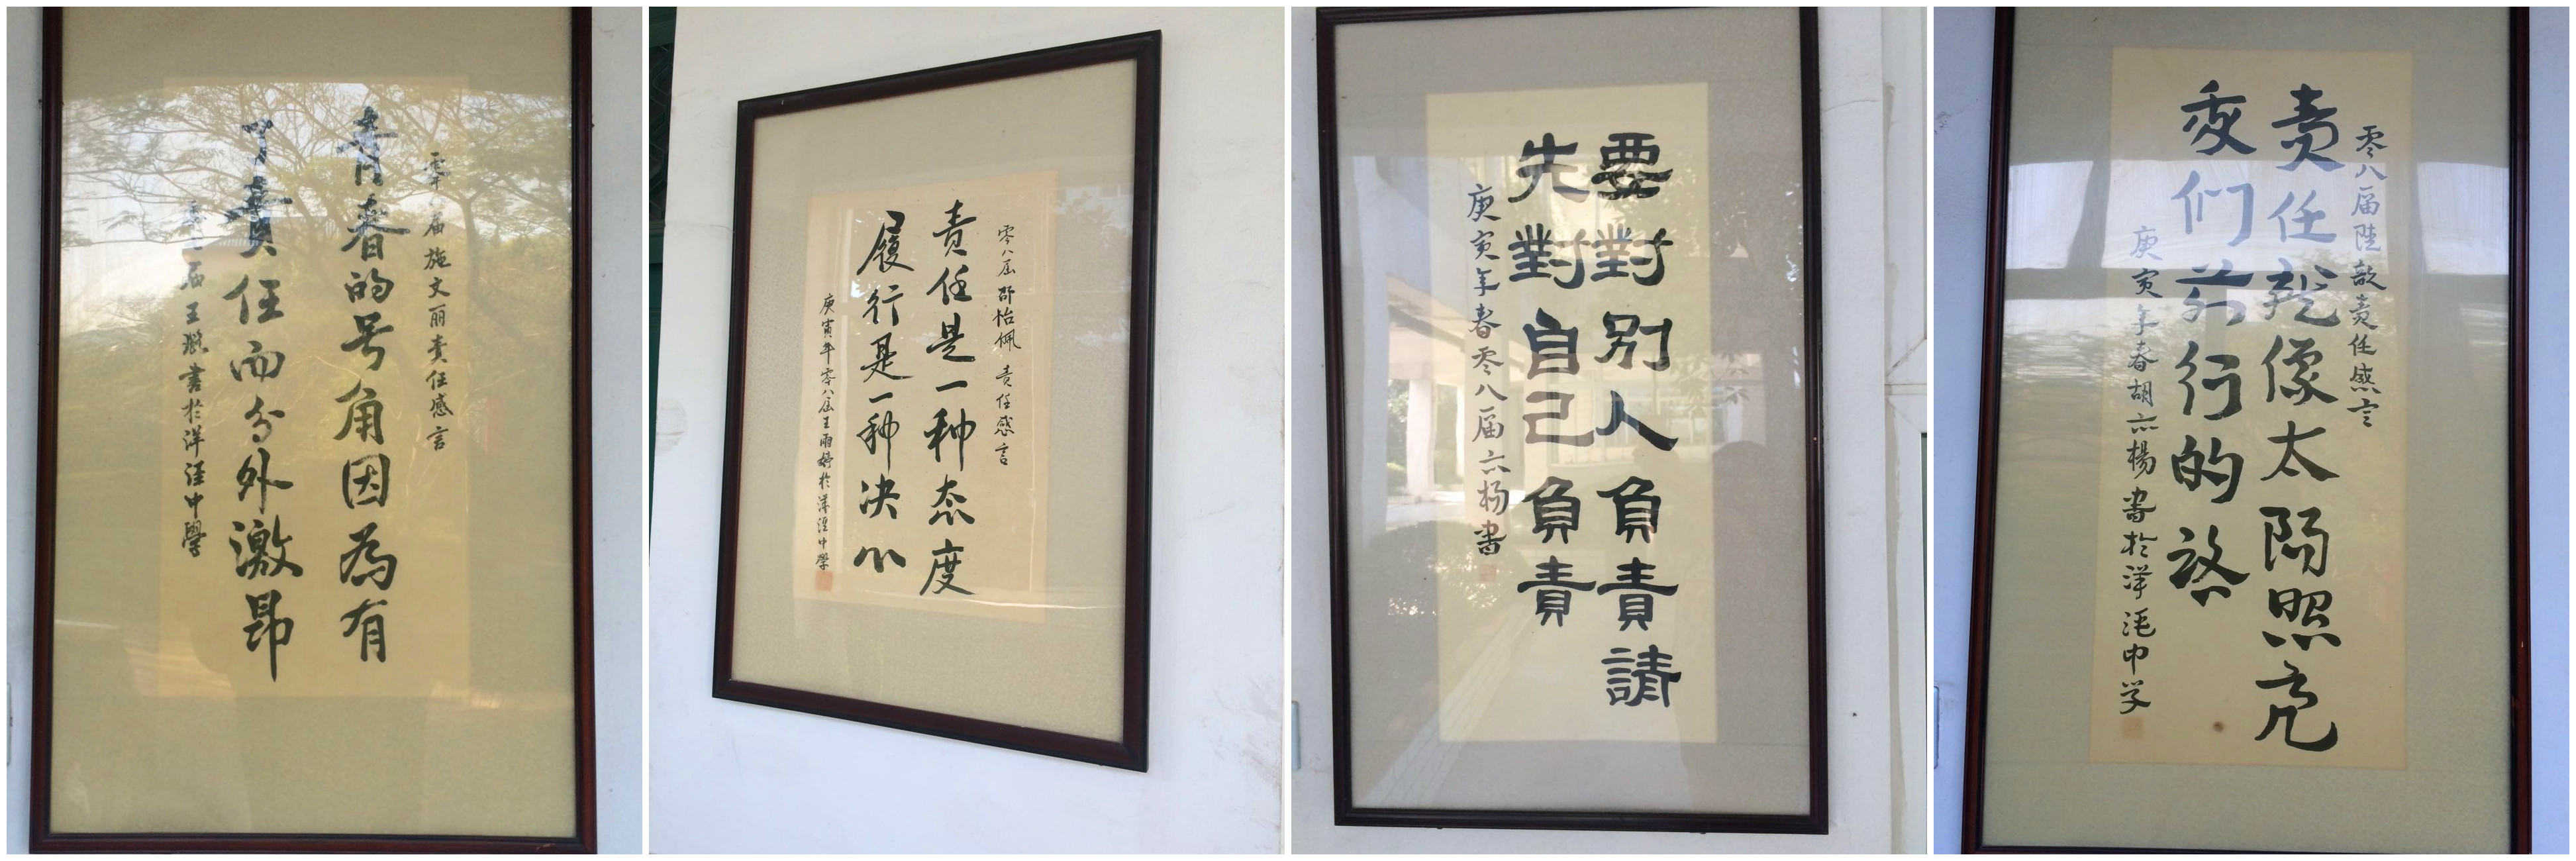 届施文丽责任感言
青春的号角因為有
了責任而分外激昂
届王 書於洋泾中學
零八届邵怡佩 责任感言
责任是一种态度
履行是一种决心
庚寅年零八届王雨婷於洋泾中學
要對别人負責請
先對自己負責
庚寅年春零八届六杨書
零八届陆歆责任感言
责任就像太陽照亮
我们前行的路
庚寅年春胡六楊書於洋泾中学